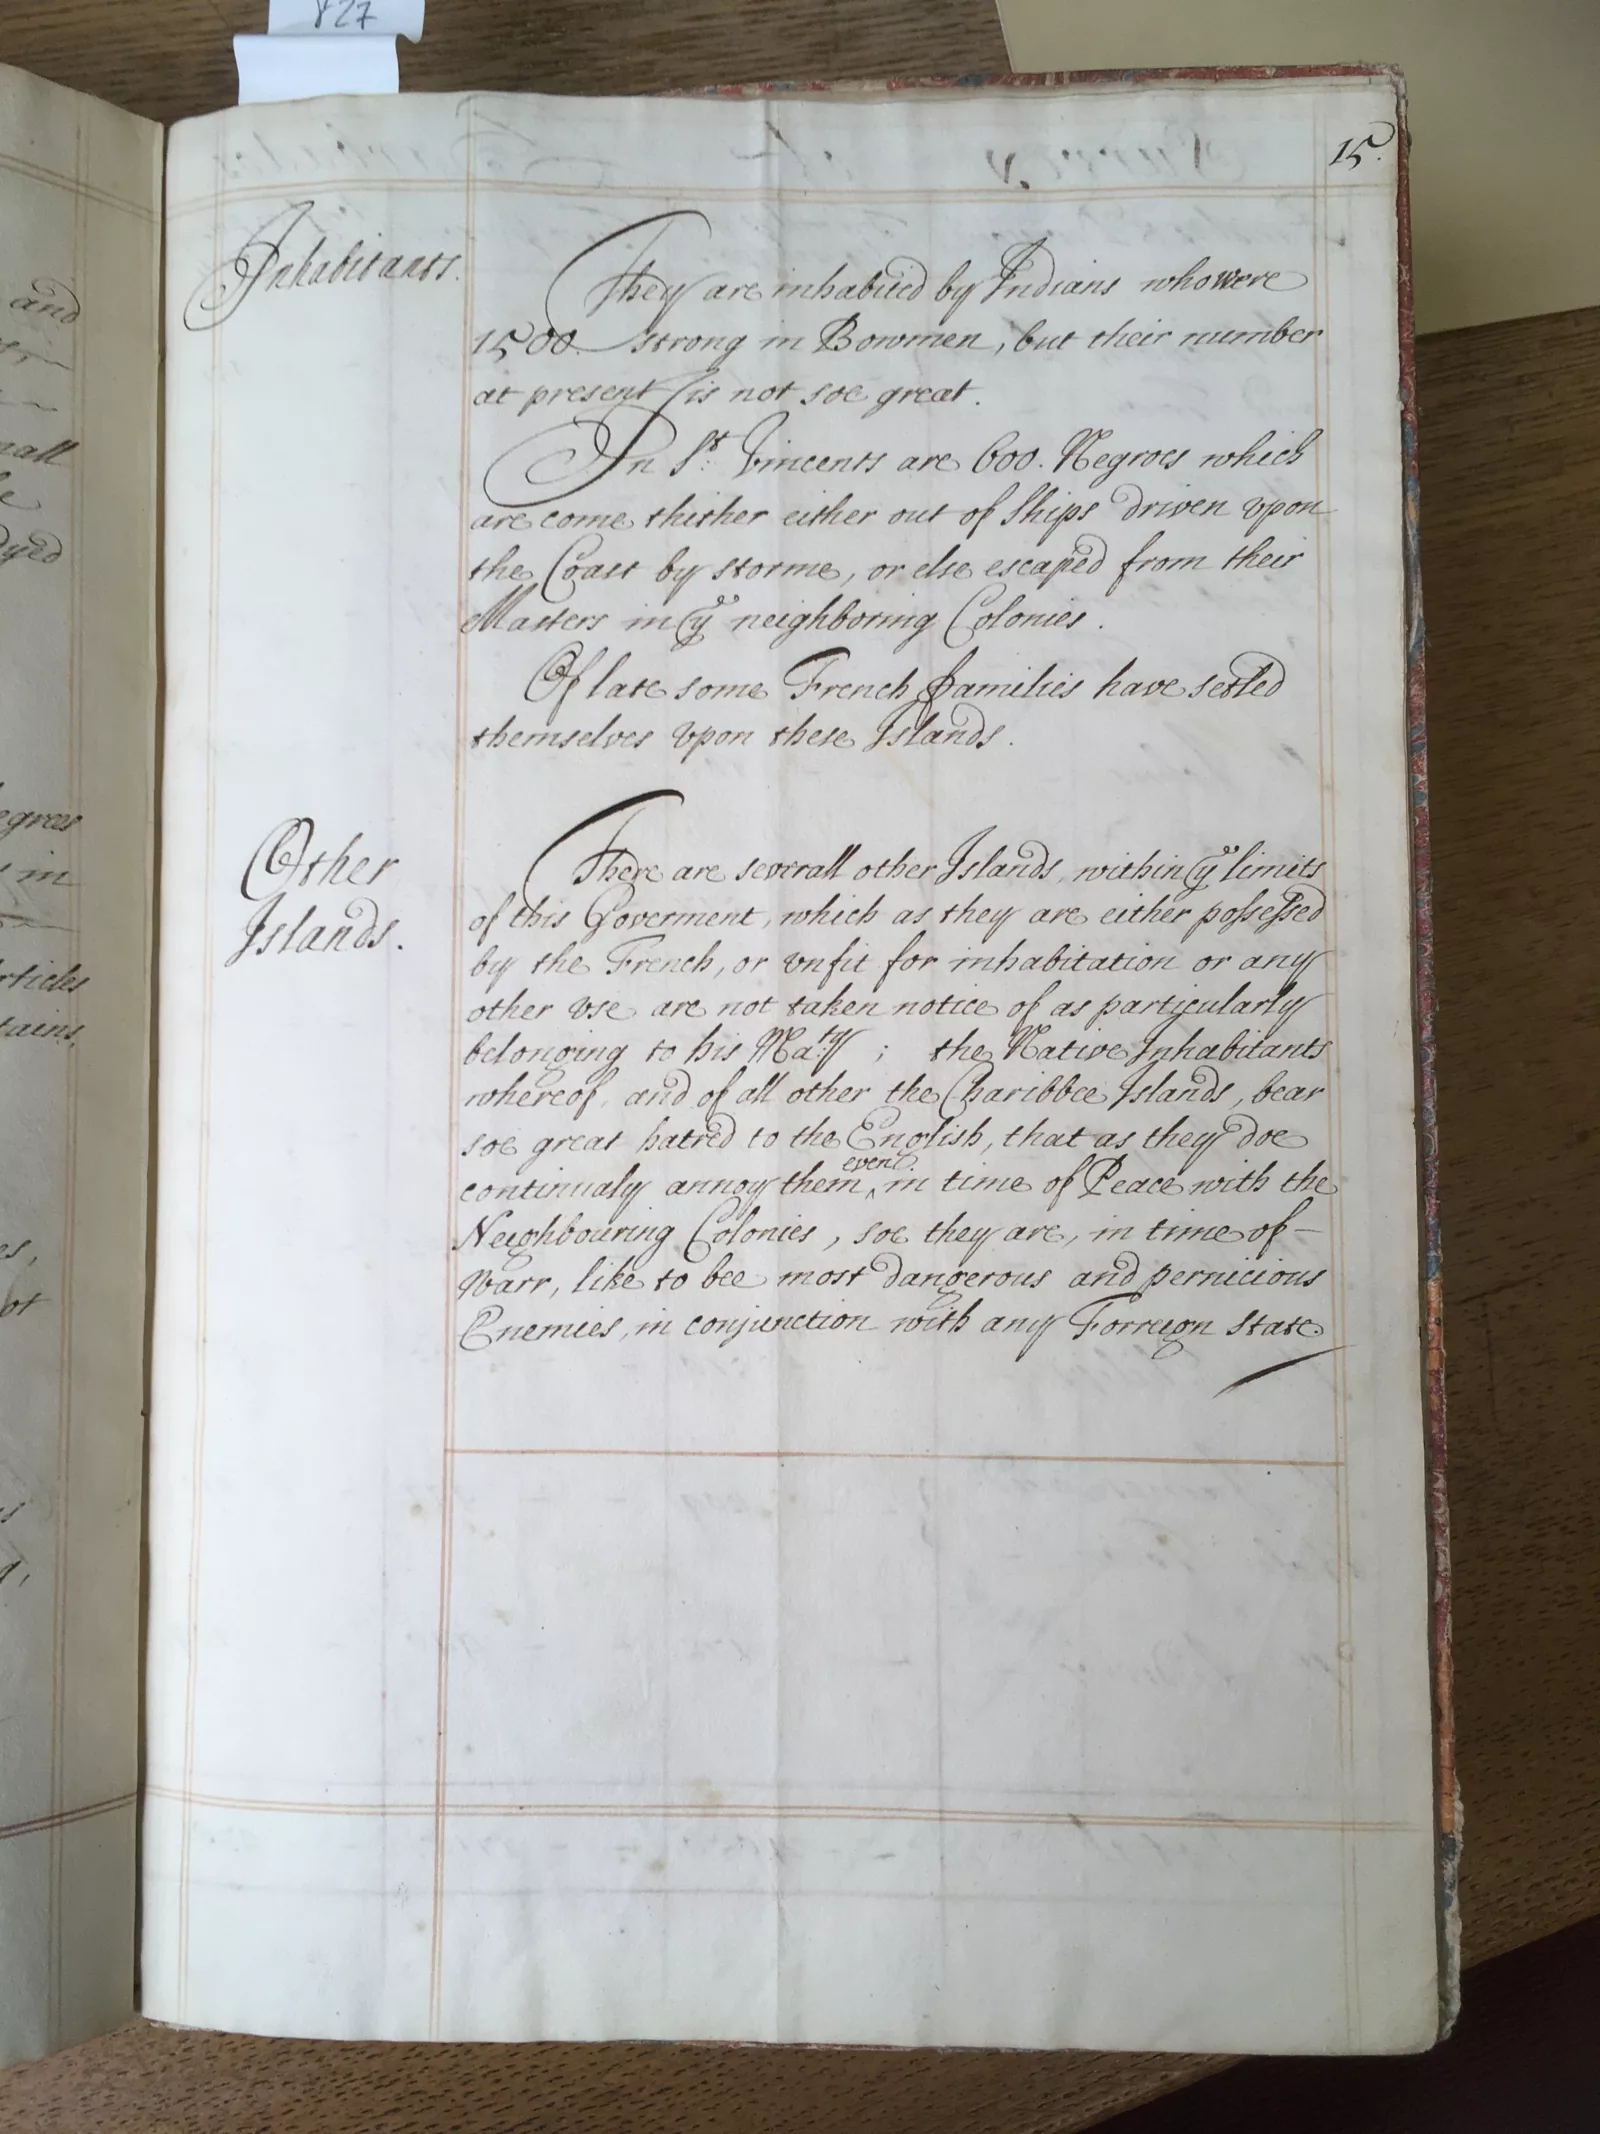 827
15.
Inhabitants.
They are inhabited by Indians who were
1500. strong in Bowmen, but their number
at present is not soe great.
In St. Vincents are 600. Negroes which
are come thither either out of Ships driven vpon
the Coast by storme, or else escaped from their
Masters in ye neighboring Colonies.
Of late some French families have setled
themselves vpon these Islands.
Other
Islands.
There are severall other Islands, within ye limits
of this Goverment, which as they are either possessed
by the French, or vnfit for inhabitation or any
other vse are not taken notice of as particularly
belonging to his Maty; the Native Inhabitants
whereof, and of all other the Charibbee Islands, bear
soe great hatred to the English, that as they doe
continualy annoy them even in time of Peace with the
Neighbouring Colonies, soe they are, in time of –
Warr, like to bee most dangerous and pernicious
Enemies, in conjunction with any Forreign State.
and
mall
dyed
egrees
in
rticles
tains.
es,
ot